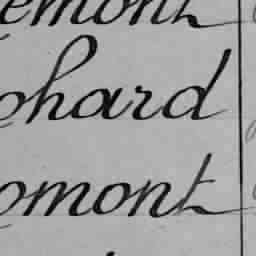 emont
ohard
omont